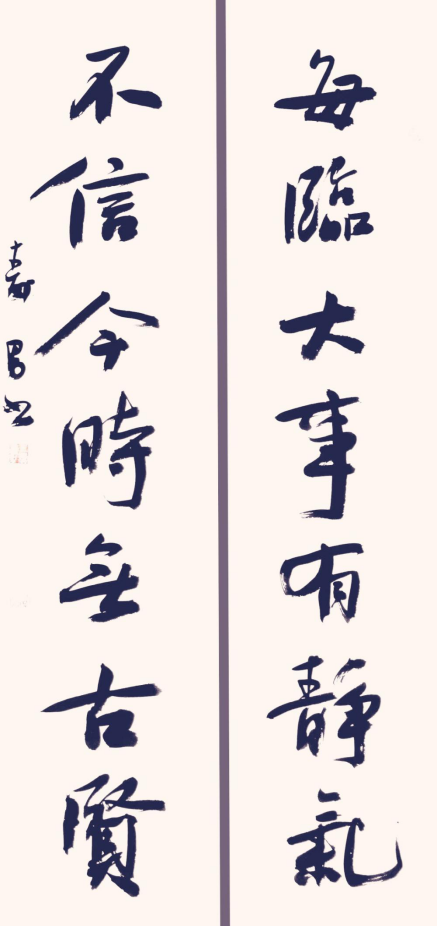 每臨大事有靜氣
不信今時無古賢